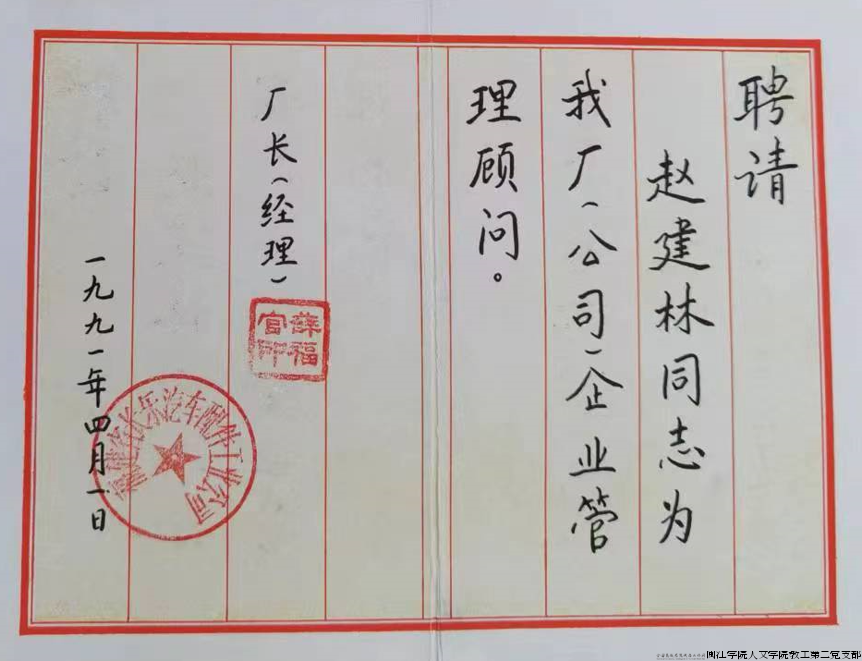 聘请
赵建林同志为
我厂(公司)企业管
理顾问。
厂长(经理)
薛福官印
一九九一年四月一日
福建省长乐汽车配件工业公司
闽江学院人文学院教工第二党支部